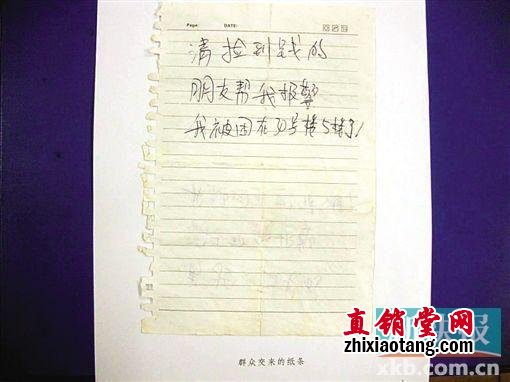 Page: DATE:
请捡到钱的
朋友帮我报警
我被困在30号楼5楼了!
快报
直销堂网
zhixiaotang.com
群众交来的纸条
xkb.com.cn